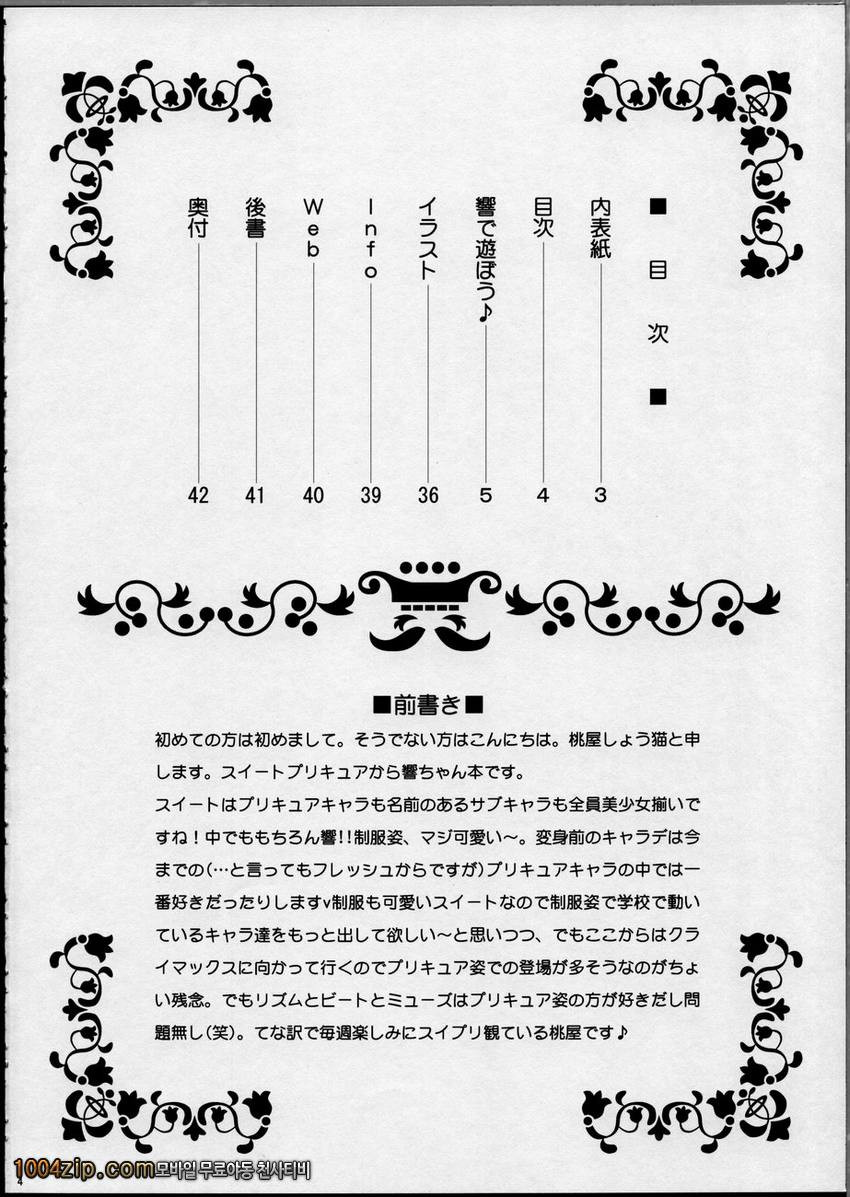 ■目次■
内表紙 3
目次 4
響で遊ぼう♪ 5
イラスト 36
Info 39
Web 40
後書 41
奥付 42
■前書き■
初めての方は初めまして。そうでない方はこんにちは。桃屋しょう猫と申
します。スイートプリキュアから響ちゃん本です。
スイートはプリキュアキャラも名前のあるサブキャラも全員美少女揃いで
すね！中でももちろん響!!制服姿、マジ可愛い〜。変身前のキャラデは今
までの(…と言ってもフレッシュからですが)プリキュアキャラの中では一
番好きだったりしますv制服も可愛いスイートなので制服姿で学校で動い
ているキャラ達をもっと出して欲しい〜と思いつつ、でもここからはクラ
イマックスに向かって行くのでプリキュア姿での登場が多そうなのがちょ
い残念。でもリズムとビートとミューズはプリキュア姿の方が好きだし問
題無し(笑)。てな訳で毎週楽しみにスイプリ観ている桃屋です♪
1004zip.com모바일 무료야동 천사티비
4